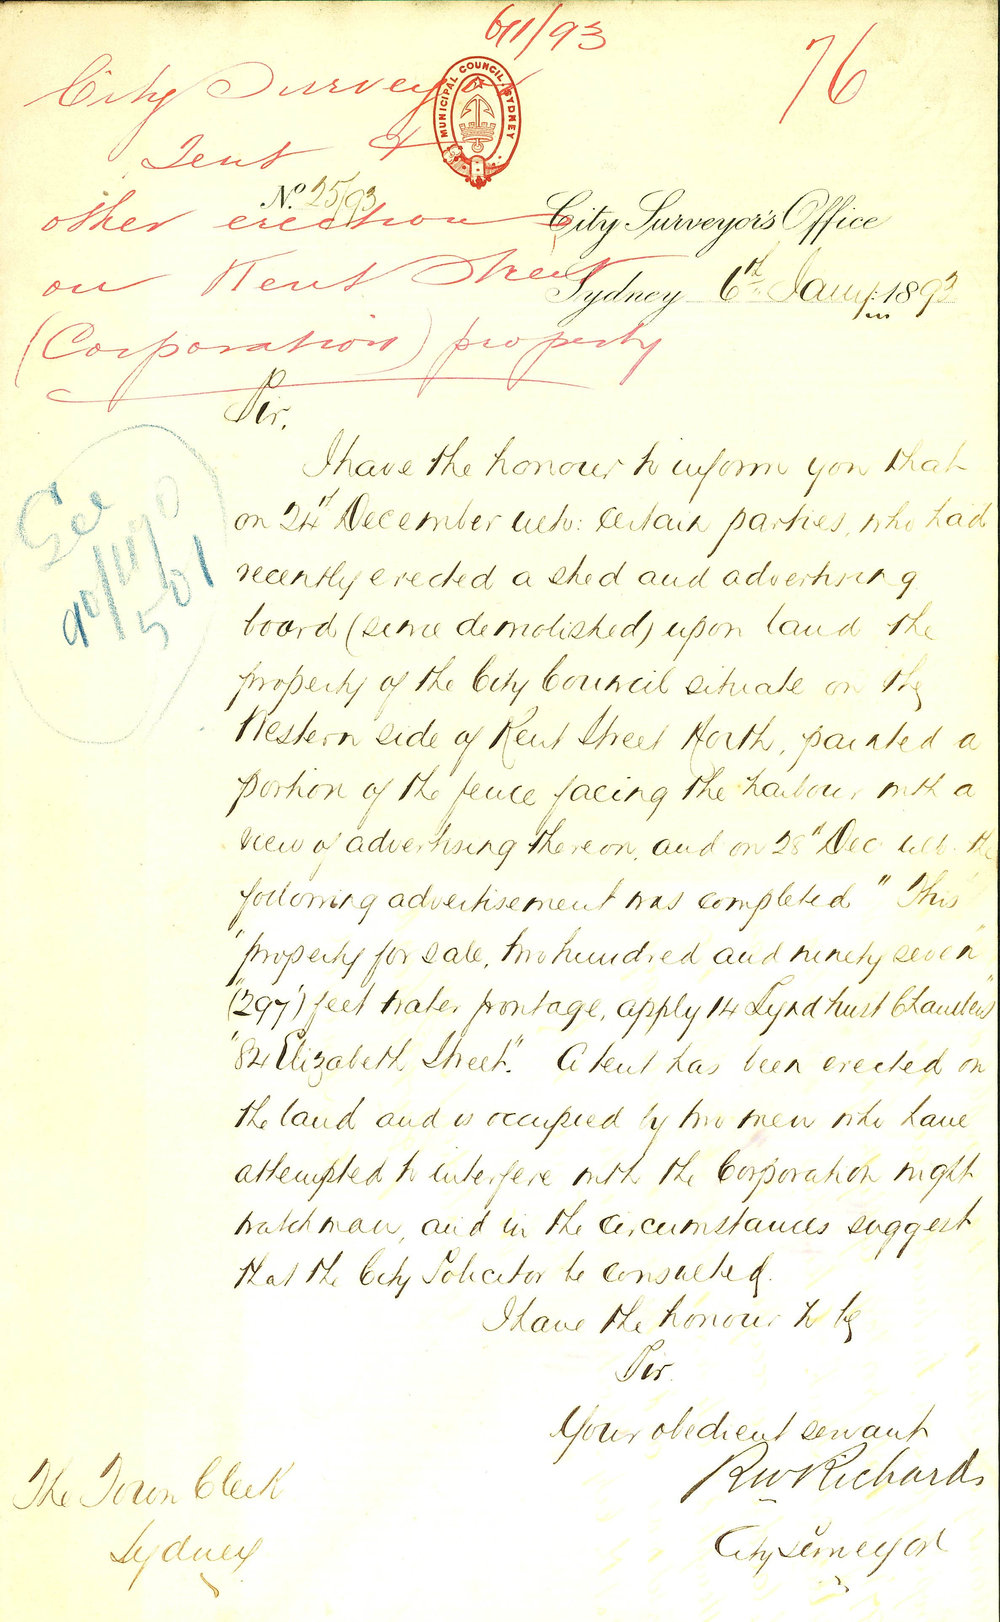 6/1/93
76
City Surveyor
Tent &
other erection
on Kent Street
(Corporation) property
MUNICIPAL COUNCIL, SYDNEY
No. 25/93
City Surveyor's Office
Sydney 6th Jany: 1893
See
90/11/70
501
Sir,
I have the honour to inform you that
on 24th December ulto: certain parties, who had
recently erected a shed and advertising
board (since demolished) upon land the
property of the City Council situate on the
Western side of Kent Street North, painted a
portion of the fence facing the harbour with a
view of advertising thereon, and on 28th Dec ulto. the
following advertisement was completed "This"
"property for sale, two hundred and ninety seven"
"(297') feet water frontage, apply 14 Lyndhurst Chambers"
"84 Elizabeth Street". A tent has been erected on
the land and is occupied by two men who have
attempted to interfere with the Corporation night
watchman, and in the circumstances suggest
that the City Solicitor be consulted.
I have the honour to be
Sir.
Your obedient servant
RW Richards
City Surveyor
The Town Clerk
Sydney